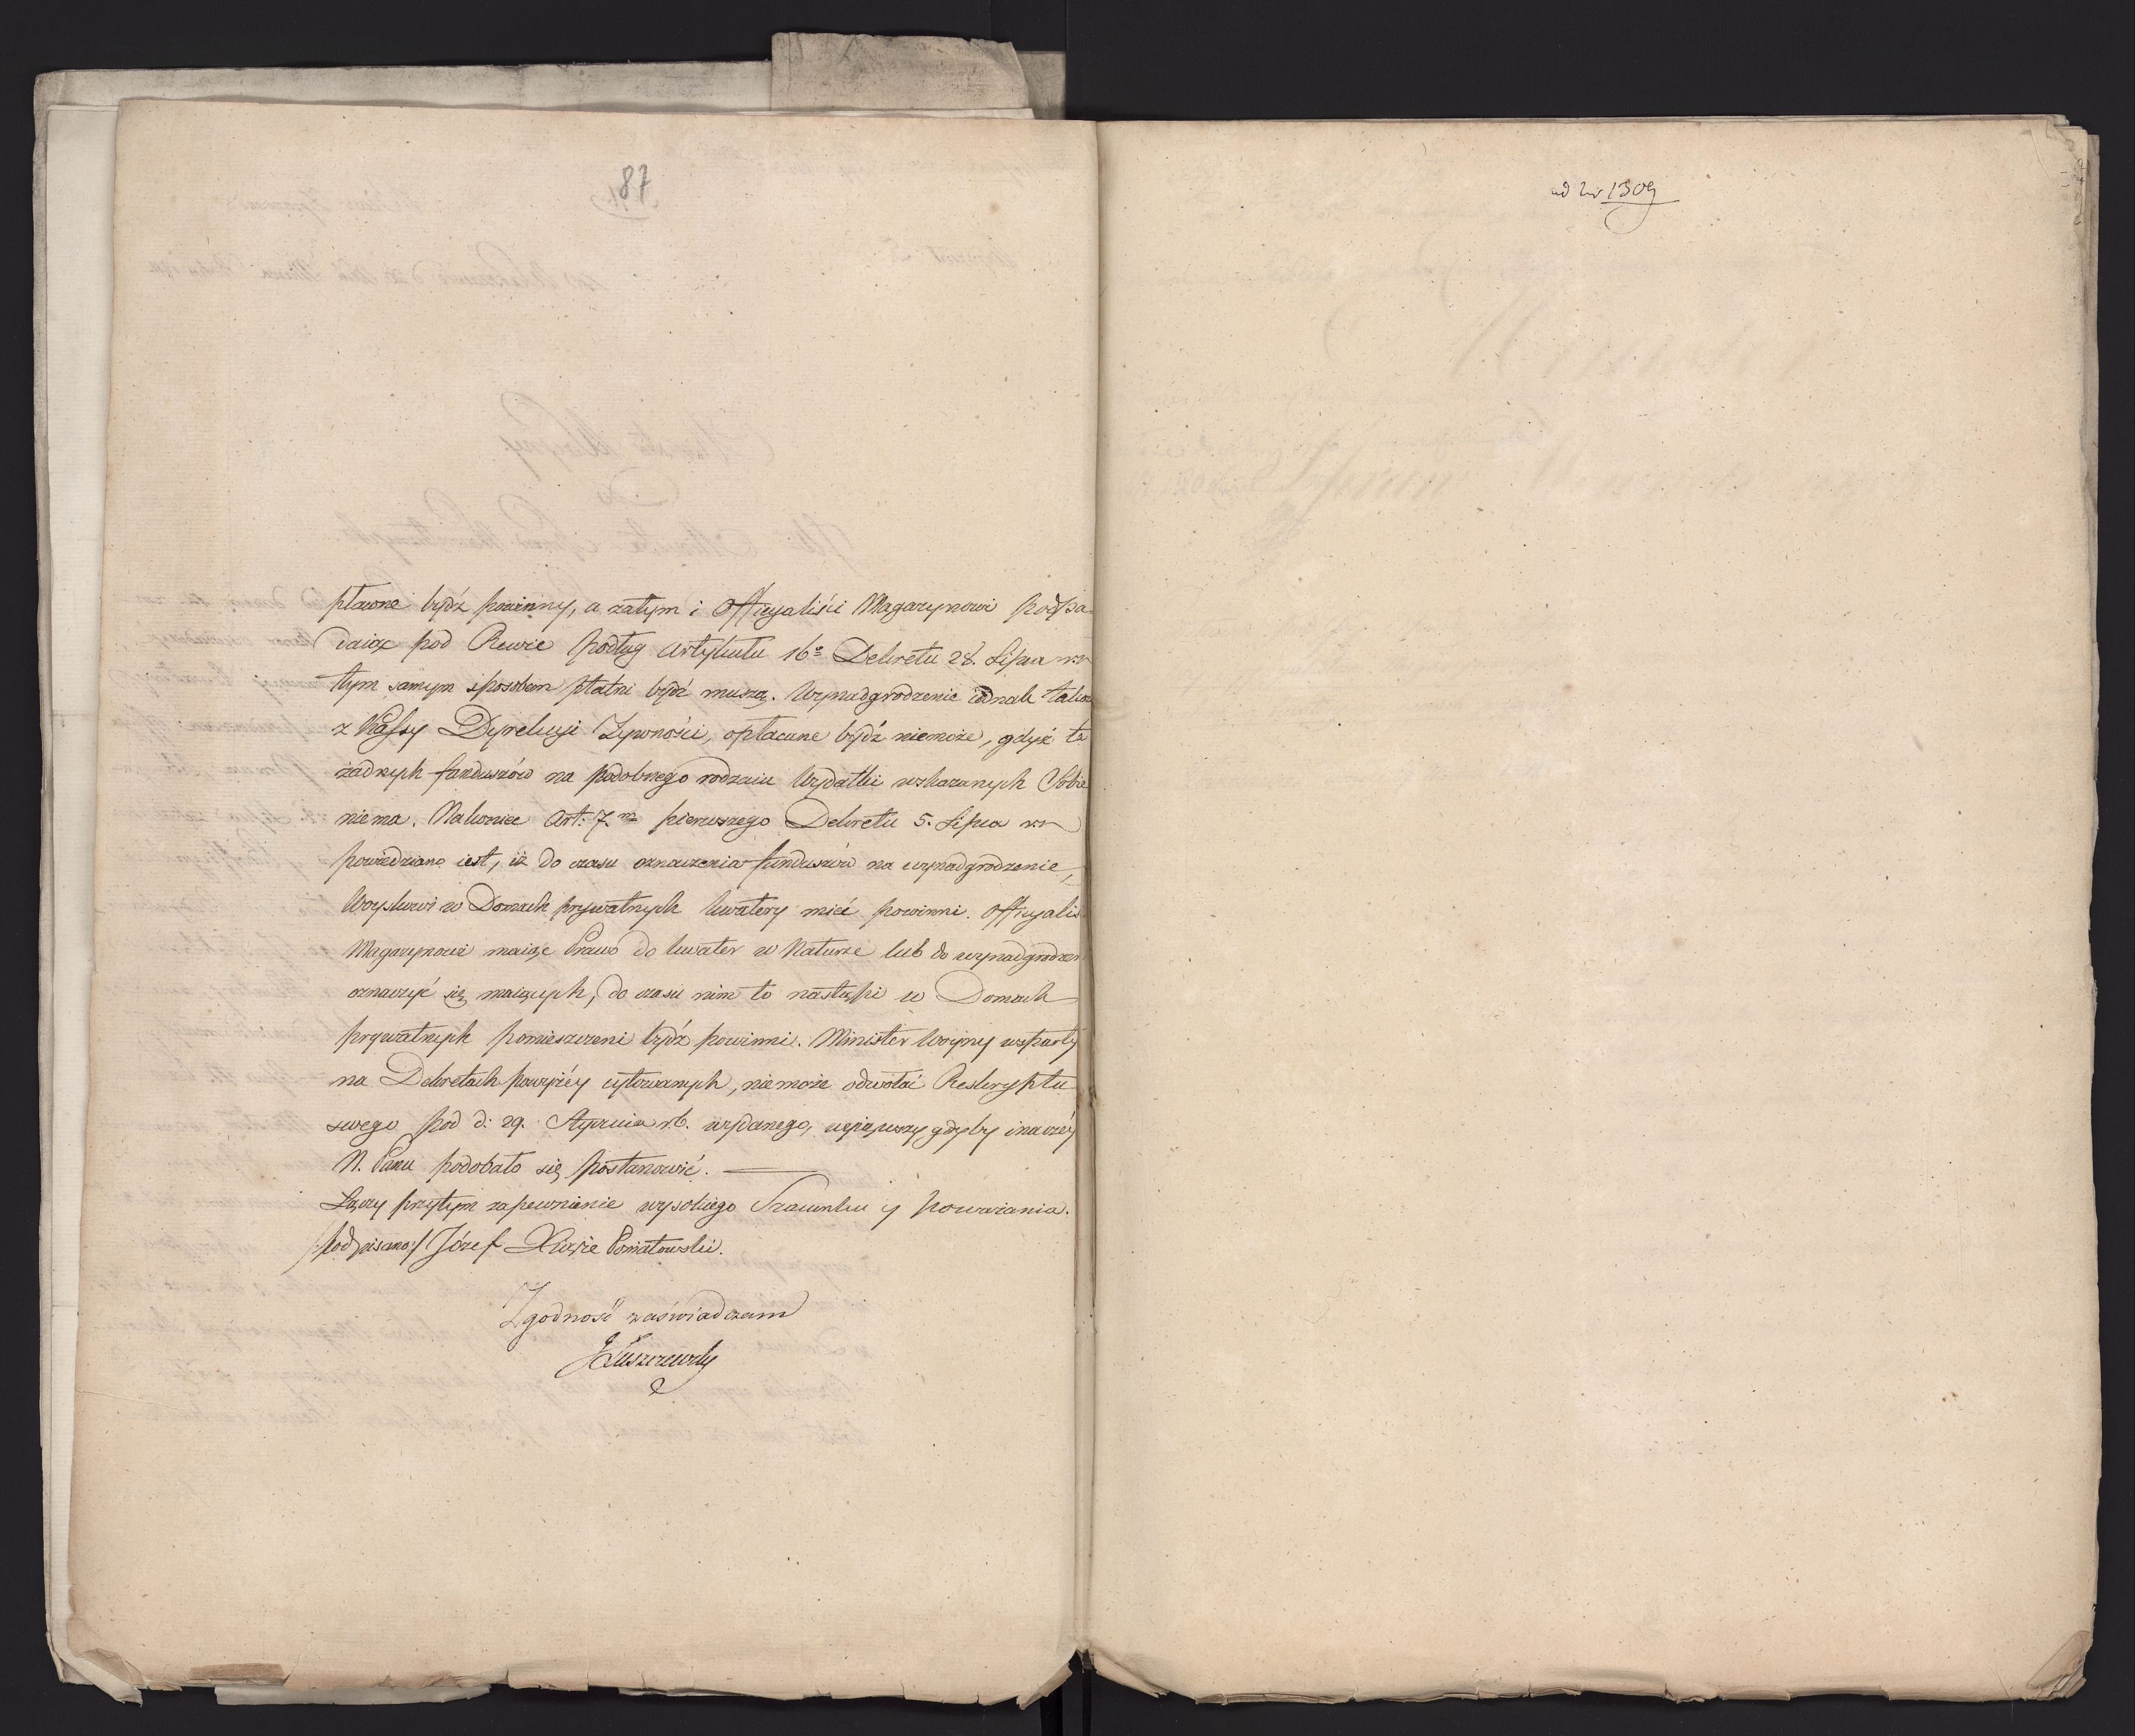 87
płacone bydź powinny, a zatym i Officyaliści Magazynowi podpa
daiąc pod Rewie podług Artykułu 16º Dekretu 28. Lipca rn
tym samym sposobem płatni bydź muszą. Wynadgrodzenie iednak takow
z Kassy Dyrekcyi Zywności, opłacane bydź niemoże, gdyż ta
żadnych funduszów na podobnego rodzaiu Wydatki wskazanych Sobie
niema. Nakoniec Art: 7m pierwszego Dekretu 5. Lipca rn
powiedziano iest, iż do czasu oznaczenia funduszów na wynadgrodzenie,
Woyskowi w Domach prywatnych kwatery mieć powinni. Officyalis
Magazynowi maiąc Prawo do kwater w Naturze lub do wynadgrodzen
oznaczyć się maiących, do czasu nim to nastąpi w Domach
prywatnych pomieszczeni bydź powinni. Minister Woyny wsparty
na Dekretach powyżéy cytowanych, niemoże odwołać Reskryptu
swego pod d: 29. Stycznia r.b. wydanego, wyiąwszy gdyby inaczéy
N. Panu podobało się postanowić. —
Łączy przytym zapewnienie wysokiego Szacunku y Poważania.
/:podpisano:/ Józef Xiąże Poniatowski.
Zgodność zaświadczam
JŁuszczewsky
ad Nr 1309